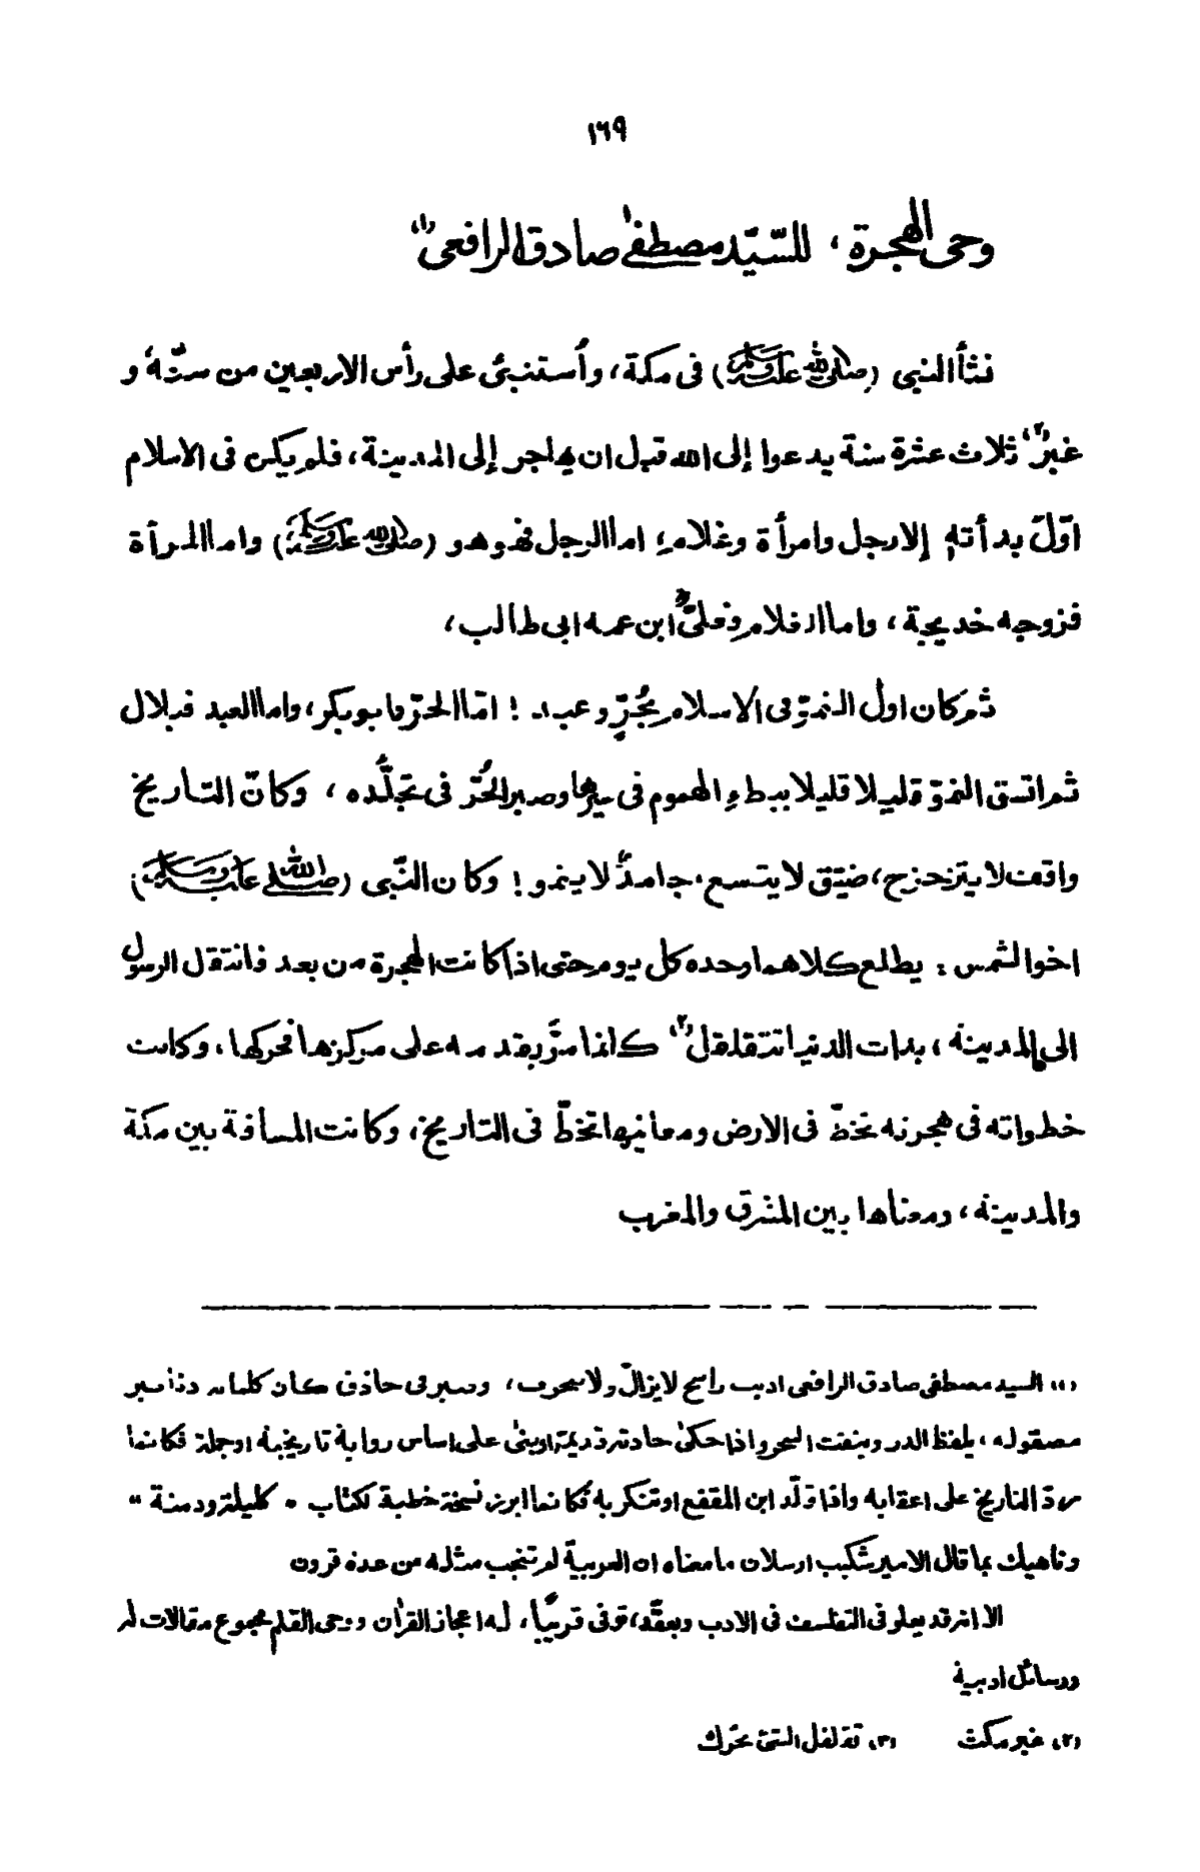 ١٦٩
وحى الهجرة، للسّيّد مصطفىٰ صادق الرافعى (١)
نشأ النبى (صلى الله عليه وسلم) فى مكة، واُستنبئ على رأس الاربعين من سنّه، و
غبر (٢) ثلاث عشرة سنة يدعوا إلى الله قبل ان يهاجر إلى المدينة، فلم يكن فى الاسلام
اوّل بدأته إلا رجل وامرأة وغلام؛ اما الرجل فهو هو (صلى الله عليه وسلم) واما المرأة
فزوجه خديجة، واما الغلام فعلىٌّ ابن عمه ابى طالب،
ثم كان اول النموّ فى الاسلام بحُرٍّ وعبد! امّا الحرّ فابو بكر، واما العبد فبلال
ثم اتسق النموّ قليلا قليلا ببطء الهموم فى سيرها وصبر الحُرّ فى تجلُّده، وكانّ التاريخ
واقف لا يتزحزح، ضيّق لا يتسع، جامدٌ لا ينمو! وكان النّبى (صلى الله عليه وسلم)
اخوا لشمس: يطلع كلاهما وحده كل يوم حتى اذا كانت الهجرة من بعد فانتقل الرسول
الى المدينة، بدات الدنيا تتقلقل (٣) كانما مرَّ بقدمه على مركزها فحركها، وكانت
خطواته فى هجرته تخطّ فى الارض ومعانيها تخطّ فى التاريخ، وكانت المسافة بين مكة
والمدينة، ومعناها بين المشرق والمغرب
(١) السيد مصطفى صادق الرافعى اديب راسخ لا يزالّ ولا ينحرف، وصيرفى حاذق كان كلماته دنانير
مصقوله، يلفظ الدر وينفث السحر واذا حكىٰ حادثة قديمة اوبنىٰ على اساس رواية تاريخية اوجملة فكانما
ردّ التاريخ على اعقابه واذا قلّد ابن المقفع اوتنكر به فكانما ابرز نسخة خطية لكتاب "كليلة ودمنة"
وناهيك بما قال الامير شكيب ارسلان ما معناه ان العربية لم تنجب مثله من عدة قرون
الا انه قد يعلو فى التفلسف فى الادب ويعقّد، توفى قريبًا، له اعجاز القراٰن ووحى القلم مجموع مقالات له
ورسائل ادبية
(٢) غبر مكث (٣) تقلقل الشئ تحرّك